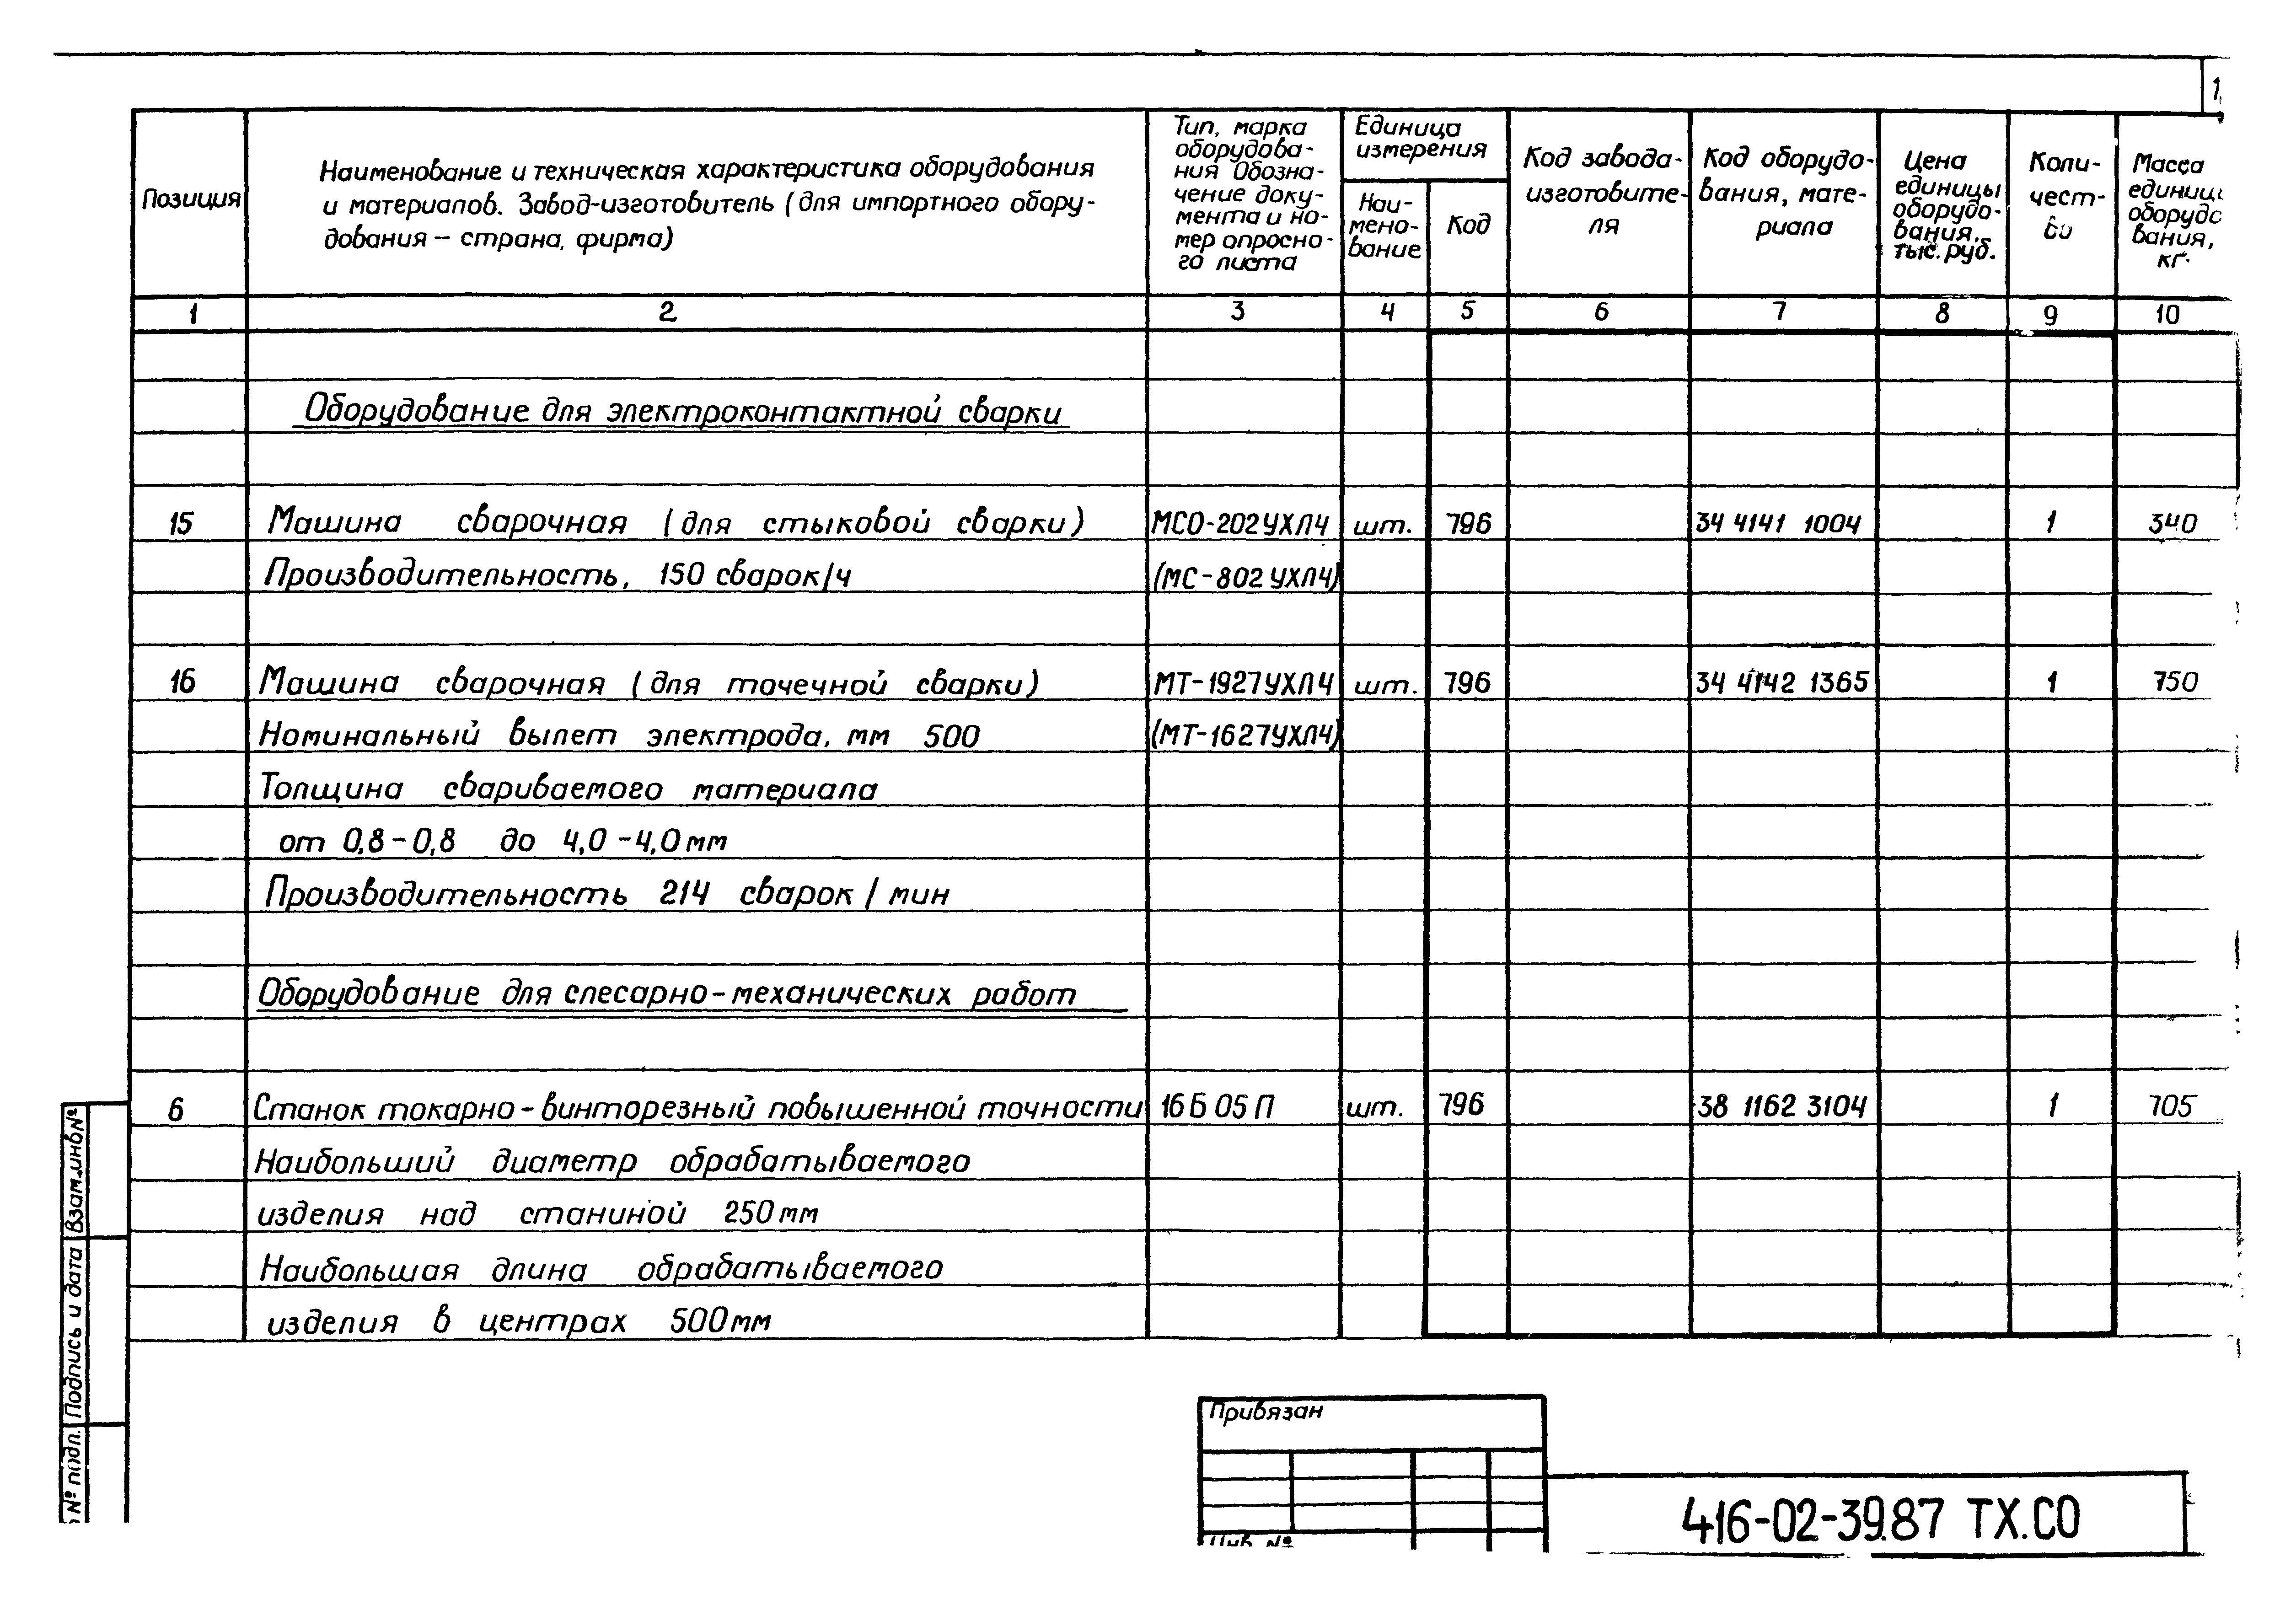 1
Позиция
Наименование и техническая характеристика оборудования
и материалов. Завод-изготовитель (для импортного обору-
дования – страна, фирма)
Тип, марка
оборудова-
ния Обозна-
чение доку-
мента и но-
мер опросно-
го листа
Единица
измерения
Наи-
мено-
вание
Код
Код завода-
изготовите-
ля
Код оборудо-
вания, мате-
риала
Цена
единицы
оборудо-
вания,
тыс. руб.
Коли-
чест-
во
Масса
единиц
оборудо
вания,
кг.
1 2 3 4 5 6 7 8 9 10
Оборудование для электроконтактной сварки
15 Машина сварочная (для стыковой сварки) МСО-202УХЛ4 шт. 796 34 4141 1004 1 340
Производительность, 150 сварок/ч (МС-802 УХЛ4)
16 Машина сварочная (для точечной сварки) МТ-1927УХЛ4 шт. 796 34 4142 1365 1 750
Номинальный вылет электрода, мм 500 (МТ-1627УХЛ4)
Толщина свариваемого материала
от 0,8-0,8 до 4,0-4,0мм
Производительность 214 сварок/мин
Оборудование для слесарно-механических работ
6 Станок токарно-винторезный повышенной точности 16Б05П шт. 796 38 1162 3104 1 705
Наибольший диаметр обрабатываемого
изделия над станиной 250мм
Наибольшая длина обрабатываемого
изделия в центрах 500мм
Взам.инв№
Подпись и дата
№ подл.
Привязан
Инв. №
416-02-39.87 ТХ.СО